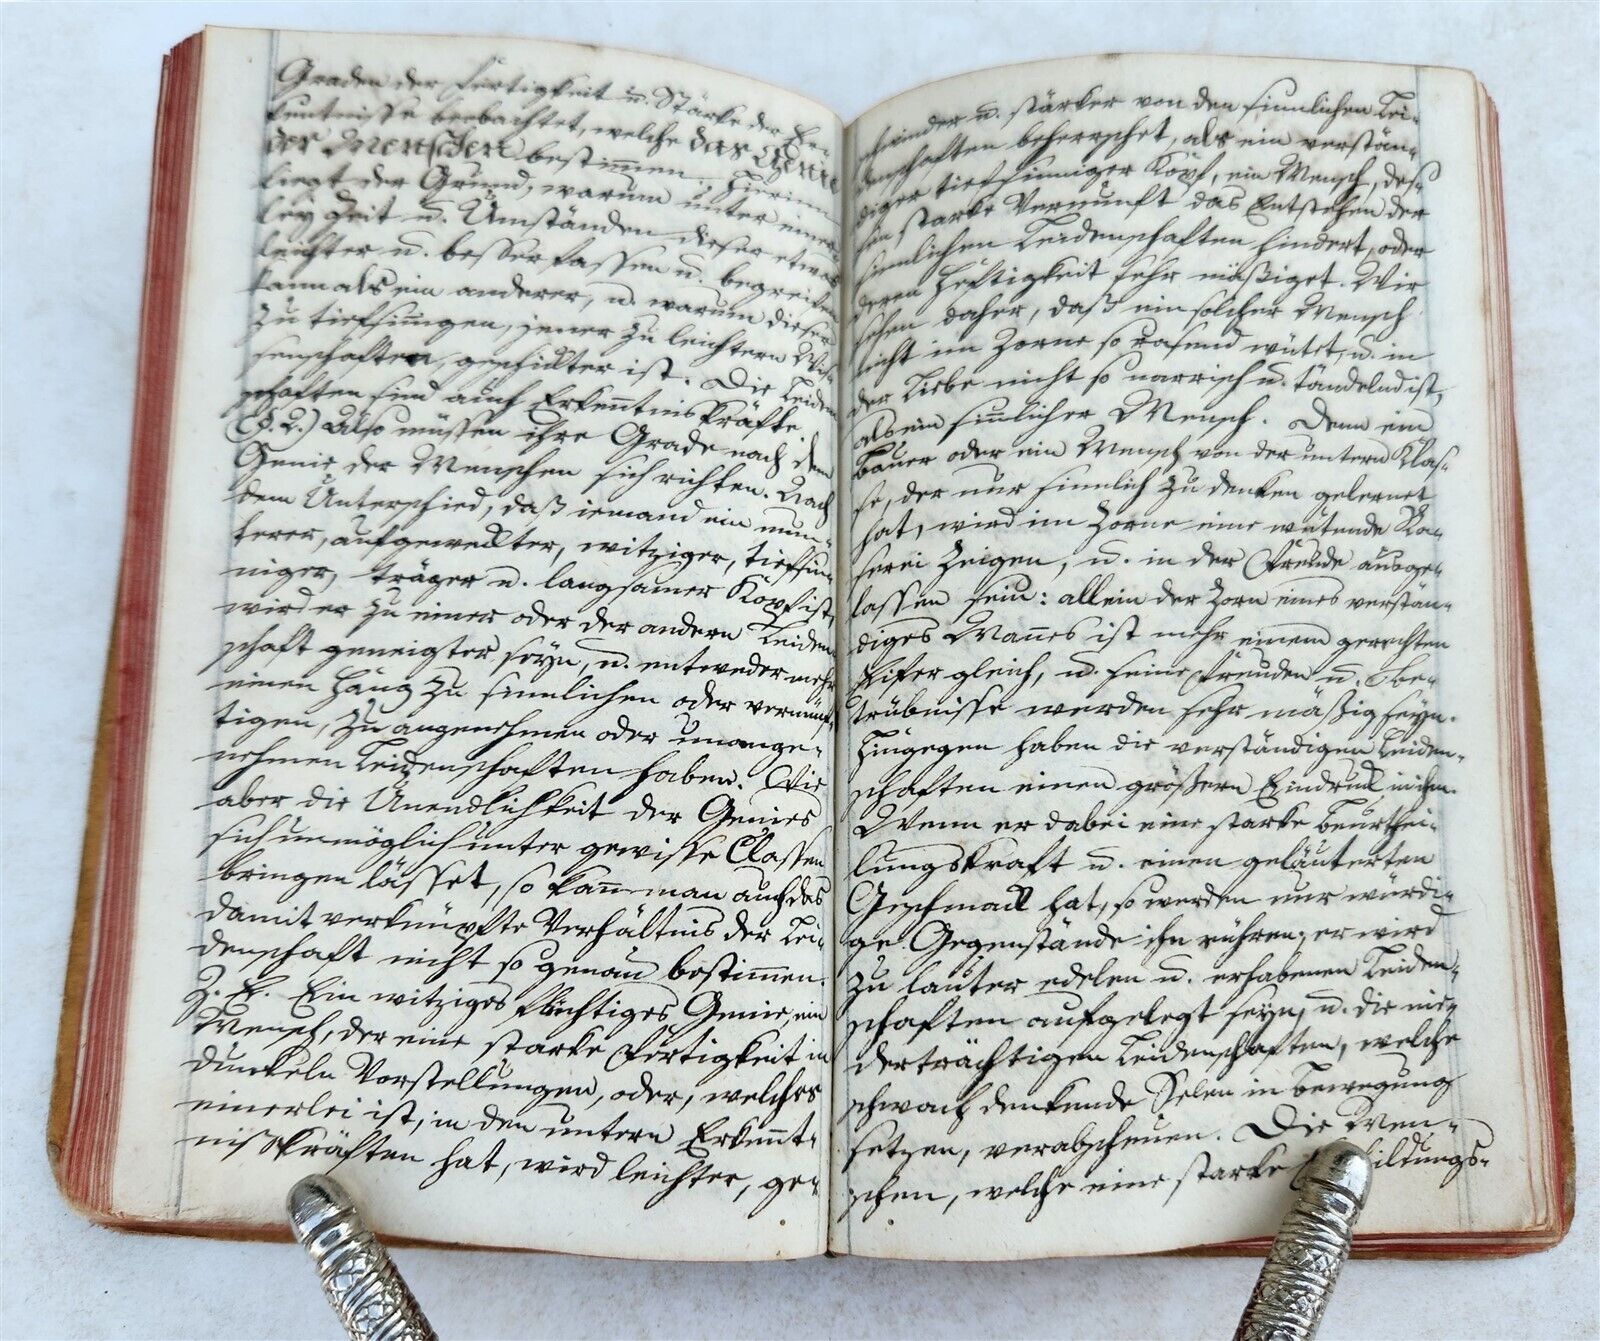 Graden der Fertigkeit u. Stärke der Er-
kentnisse beobachtet, welche das Genie
der Menschen bestim̅en. Hierinn
liegt der Grund, warum unter einer-
ley Zeit u. Umständen dieser etwas
leichter u. besser fassen u. begreifen
kann als ein anderer, u. warum dieser
zu tiefsinnigen, jener zu leichtern Wis-
senschaften, geschickter ist. Die Leiden-
schaften sind auch Erken̅tniskräfte
(§. 2.) Also müssen ihre Grade nach dem
Genie der Menschen sich richten. Nach
dem Unterschied, daß iemand ein mun-
terer, aufgeweckter, witziger, tiefsin-
niger, träger u. langsamer Kopf ist,
wird er zu einer oder der andern Leiden-
schaft geneigter seyn, u. entweder mehr
einen Hang zu sinnlichen oder vernünf-
tigen, zu angenehmen oder unange-
nehmen Leidenschaften haben. Wie
aber die Unendlichkeit der Genies
sich unmöglich unter gewisse Classen
bringen lässet, so kan̅ man auch das
damit verknüpfte Verhältnis der Lei-
denschaft nicht so genau bestim̅en.
Z. E. Ein witziges flüchtiges Genie, ein
Mensch, der eine starke Fertigkeit in
dunkeln Vorstellungen, oder, welches
einerlei ist, in den untern Erken̅t-
nißkräften hat, wird leichter, ge-
schwinder u. stärker von den sinnlichen Lei-
denschaften beherrschet, als ein verstän-
diger tiefsinniger Kopf, ein Mensch, des-
sen starke Vernunft das Entstehen der
sinnlichen Leidenschaften hindert, oder
deren Heftigkeit sehr mäßiget. Wir
sehen daher, daß ein solcher Mensch
nicht im Zorne so rasend wütet, u. in
der Liebe nicht so narrisch u. tändelnd ist,
als ein sin̅licher Mensch. Denn ein
Bauer oder ein Mensch von der untern Klas-
se, der nur sinnlich zu denken gelernet
hat, wird im Zorne eine wütende Ra-
serei zeigen, u. in der Freude ausge-
lassen sein: allein der Zorn eines verstän-
diges Man̅es ist mehr einem gerechten
Eifer gleich, u. seine Freuden u. Be-
trübnisse werden sehr mäßig seyn.
Hingegen haben die verständigen Leiden-
schaften einen größern Eindruck in ihm.
Wenn er dabei eine starke Beurthei-
lungskraft u. einen geläuterten
Geschmack hat, so werden nur würdi-
ge Gegenstände ihn rühren; er wird
zu lauter edelen u. erhabenen Leiden-
schaften aufgelegt seyn, u. die nie-
derträchtigen Leidenschaften, welche
schwach denkende Selen in Bewegung
setzen, verabscheuen. Die Men-
schen, welche eine starke bildungs-